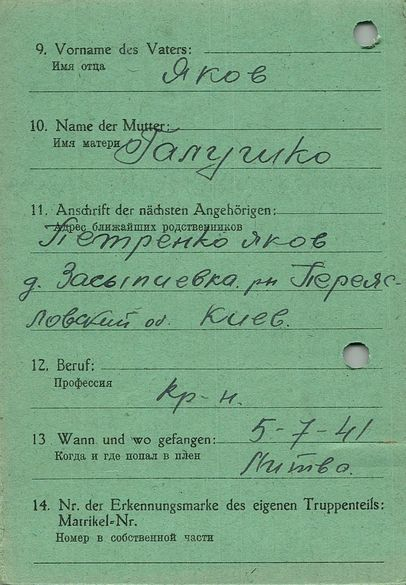 9. Vorname des Vaters:
Имя отца
Яков
10. Name der Mutter:
Имя матери
Галушко
11. Anschrift der nächsten Angehörigen:
Адрес ближайших родственников
Петренко Яков
д. рн Переяс-
ловский об. Киев.
12. Beruf:
Профессия
кр-н.
13 Wann und wo gefangen:
Когда и где попал в плен
5-7-41
Литва.
14. Nr. der Erkennungsmarke des eigenen Truppenteils:
Matrikel-Nr.
Номер в собственной части